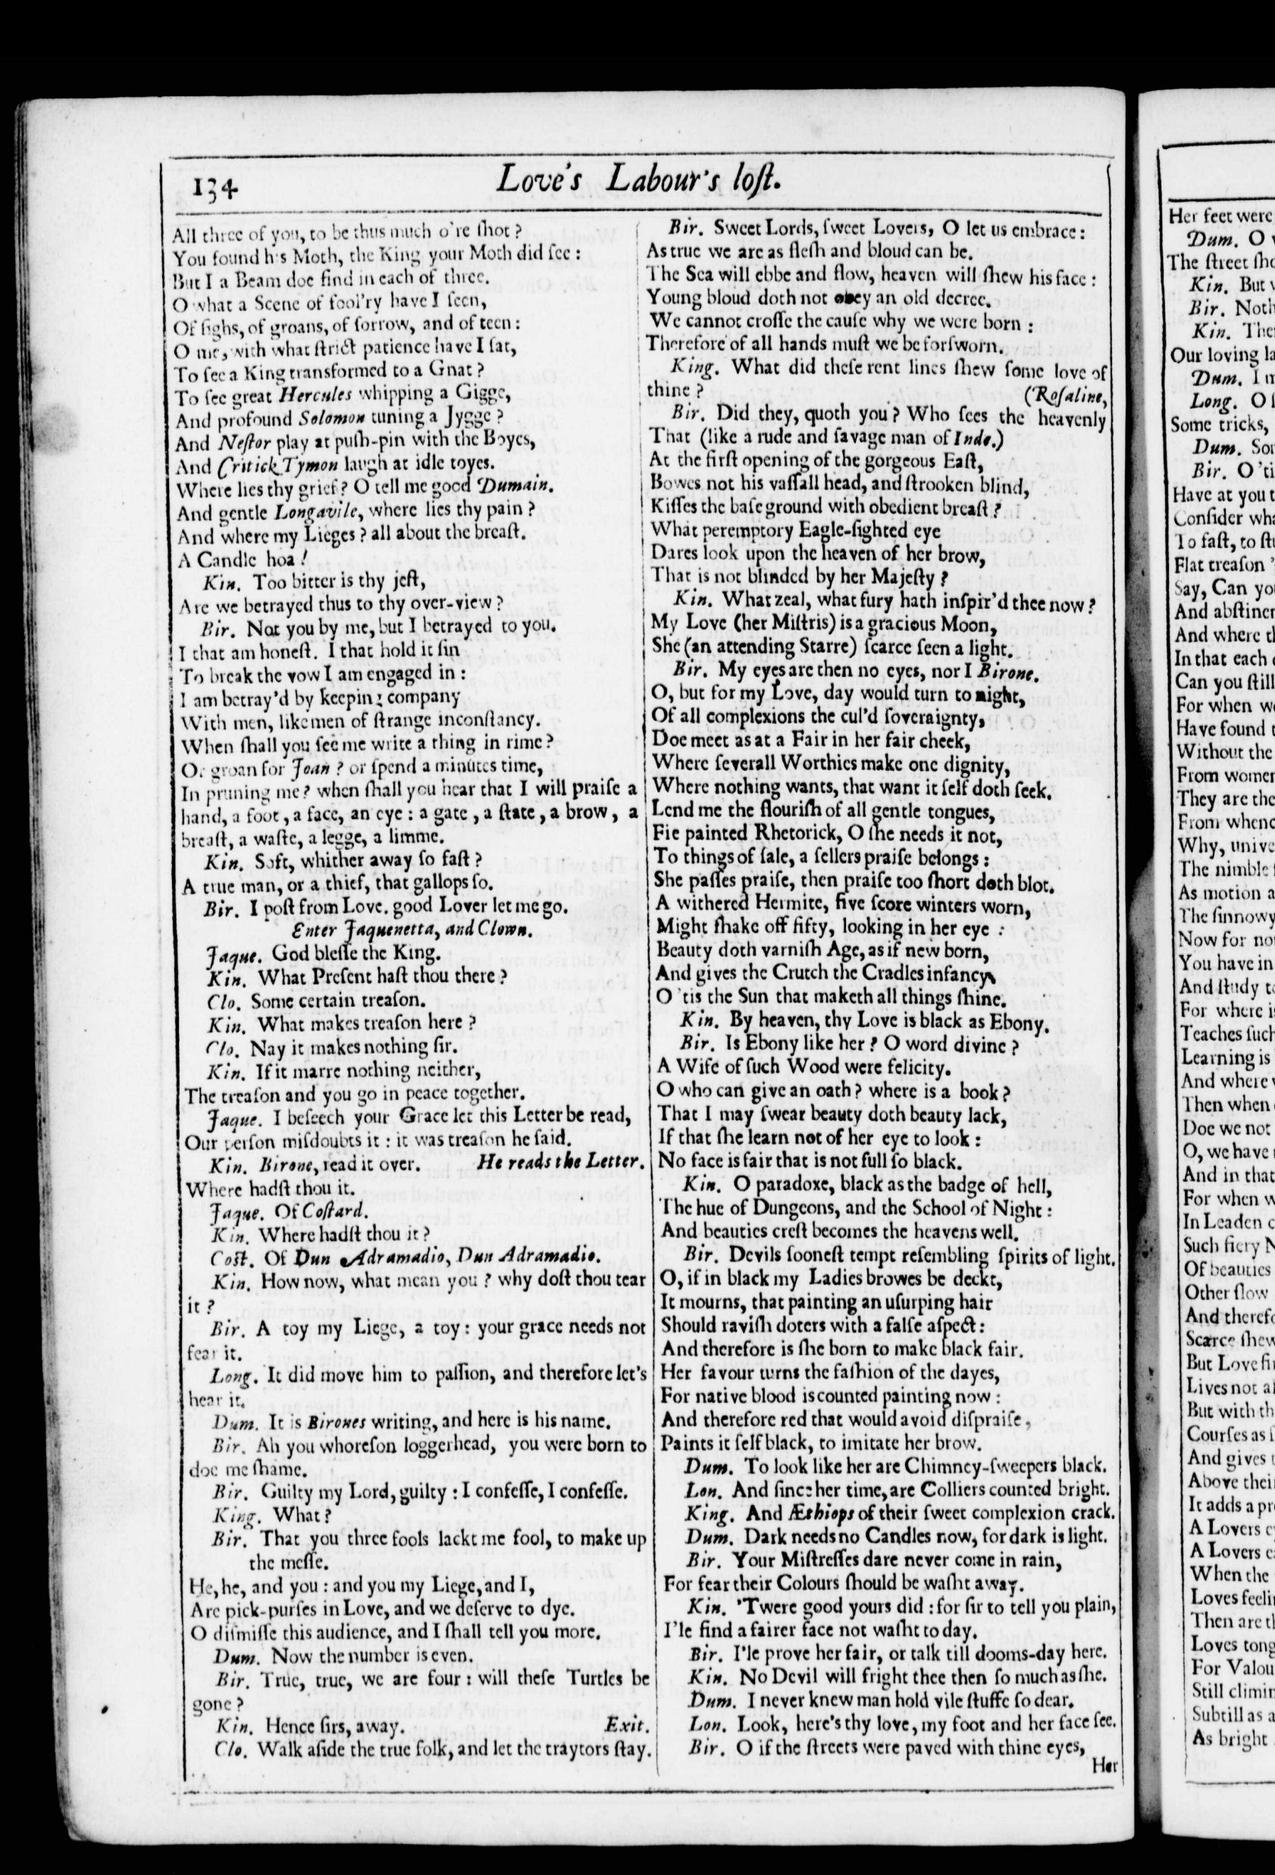 134
Love's Labour's lost.
All three of you, to be thus much o're shot?
You found h's Moth, the King your Moth did see:
But I a Beam doe find in each of three.
O what a Scene of fool'ry have I seen,
Of sighs, of groans, of sorrow, and of teen:
O me, with what strict patience have I sat,
To see a King transformed to a Gnat?
To see great Hercules whipping a Gigge,
And profound Solomon tuning a Jygge?
And Nestor play at push-pin with the Boyes,
And Critick Tymon laugh at idle toyes.
Where lies thy grief? O tell me good Dumain.
And gentle Longavile, where lies thy pain?
And where my Lieges? all about the breast.
A Candle hoa!
Kin. Too bitter is thy jest,
Are we betrayed thus to thy over-view?
Bir. Not you by me, but I betrayed to you.
I that am honest. I that hold it sin
To break the vow I am engaged in:
I am betray'd by keeping company
With men, like men of strange inconstancy.
When shall you see me write a thing in rime?
Or groan for Joan? or spend a minutes time,
In pruning me? when shall you hear that I will praise a
hand, a foot, a face, an eye: a gate, a state, a brow, a
breast, a waste, a legge, a limme.
Kin. Soft, whither away so fast?
A true man, or a thief, that gallops so.
Bir. I post from Love. good Lover let me go.
Enter Jaquenetta, and Clown.
Jaque. God blesse the King.
Kin. What Present hast thou there?
Clo. Some certain treason.
Kin. What makes treason here?
Clo. Nay it makes nothing sir.
Kin. If it marre nothing neither,
The treason and you go in peace together.
Jaque. I beseech your Grace let this Letter be read,
Our person misdoubts it: it was treason he said.
Kin. Birone, read it over. He reads the Letter.
Where hadst thou it.
Jaque. Of Costard.
Kin. Where hadst thou it?
Cost. Of Dun Adramadio, Dun Adramadio.
Kin. How now, what mean you? why dost thou tear
it?
Bir. A toy my Liege, a toy: your grace needs not
fear it.
Long. It did move him to passion, and therefore let's
hear it.
Dum. It is Birones writing, and here is his name.
Bir. Ah you whoreson loggerhead, you were born to
doe me shame.
Bir. Guilty my Lord, guilty: I confesse, I confesse.
King. What?
Bir. That you three fools lackt me fool, to make up
the messe.
He, he, and you: and you my Liege, and I,
Are pick-purses in Love, and we deserve to dye.
O dismisse this audience, and I shall tell you more.
Dum. Now the number is even.
Bir. True, true, we are four: will these Turtles be
gone?
Kin. Hence sirs, away. Exit.
Clo. Walk aside the true folk, and let the traytors stay.
Bir. Sweet Lords, sweet Lovers, O let us embrace:
As true we are as flesh and bloud can be.
The Sea will ebbe and flow, heaven will shew his face:
Young bloud doth not obey an old decree.
We cannot crosse the cause why we were born:
Therefore of all hands must we be forsworn.
King. What did these rent lines shew some love of
thine? (Rosaline,
Bir. Did they, quoth you? Who sees the heavenly
That (like a rude and savage man of Inde.)
At the first opening of the gorgeous East,
Bowes not his vassall head, and strooken blind,
Kisses the base ground with obedient breast?
What peremptory Eagle-sighted eye
Dares look upon the heaven of her brow,
That is not blinded by her Majesty?
Kin. What zeal, what fury hath inspir'd thee now?
My Love (her Mistris) is a gracious Moon,
She (an attending Starre) scarce seen a light.
Bir. My eyes are then no eyes, nor I Birone.
O, but for my Love, day would turn to night,
Of all complexions the cul'd soveraignty,
Doe meet as at a Fair in her fair cheek,
Where severall Worthies make one dignity,
Where nothing wants, that want it self doth seek.
Lend me the flourish of all gentle tongues,
Fie painted Rhetorick, O she needs it not,
To things of sale, a sellers praise belongs:
She passes praise, then praise too short doth blot.
A withered Hermite, five score winters worn,
Might shake off fifty, looking in her eye:
Beauty doth varnish Age, as if new born,
And gives the Crutch the Cradles infancy,
O 'tis the Sun that maketh all things shine.
Kin. By heaven, thy Love is black as Ebony.
Bir. Is Ebony like her? O word divine?
A Wife of such Wood were felicity.
O who can give an oath? where is a book?
That I may swear beauty doth beauty lack,
If that she learn not of her eye to look:
No face is fair that is not full so black.
Kin. O paradoxe, black as the badge of hell,
The hue of Dungeons, and the School of Night:
And beauties crest becomes the heavens well.
Bir. Devils soonest tempt resembling spirits of light.
O, if in black my Ladies browes be deckt,
It mourns, that painting an usurping hair
Should ravish doters with a false aspect:
And therefore is she born to make black fair.
Her favour turns the fashion of the dayes,
For native blood is counted painting now:
And therefore red that would avoid dispraise,
Paints it self black, to imitate her brow.
Dum. To look like her are Chimney-sweepers black.
Lon. And since her time, are Colliers counted bright.
King. And Æthiops of their sweet complexion crack.
Dum. Dark needs no Candles now, for dark is light.
Bir. Your Mistresses dare never come in rain,
For fear their Colours should be washt away.
Kin. 'Twere good yours did: for sir to tell you plain,
I'le find a fairer face not washt to day.
Bir. I'le prove her fair, or talk till dooms-day here.
Kin. No Devil will fright thee then so much as she.
Dum. I never knew man hold vile stuffe so dear.
Lon. Look, here's thy love, my foot and her face see.
Bir. O if the streets were paved with thine eyes,
Her
Her feet were
Dum. O
The street
Kin. But
Bir.
Kin.
Our loving
Dum. I
Long. O
Some tricks,
Dum.
Bir. O
Have at you
Consider
To fast, to
Flat treason
Say, Can
And
And where
In that each
Can you still
For when
Have found
Without the
From
They are the
From
Why,
The nimble
As motion
The sinnowy
Now for
You have in
And study
For where
Teaches
Learning is
And where
Then when
Doe we not
O, we have
And in that
For when
In Leaden
Such fiery
Of beauties
Other slow
And
Scarce
But Love
Lives not
But with
Courses as
And gives
Above
It adds a
A Lovers
A Lovers
When the
Loves
Then are
Loves
For
Still
Subtill as a
As bright